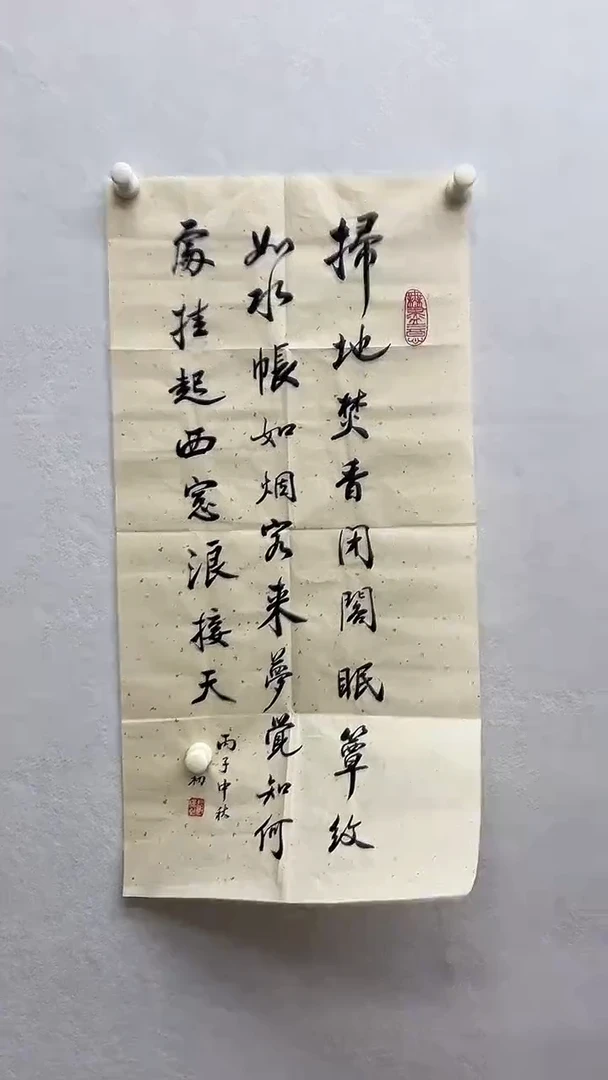 掃地焚香閉閣眠簟紋
如水帳如烟客来夢覺知何
處挂起西窓浪接天
丙子中秋
初